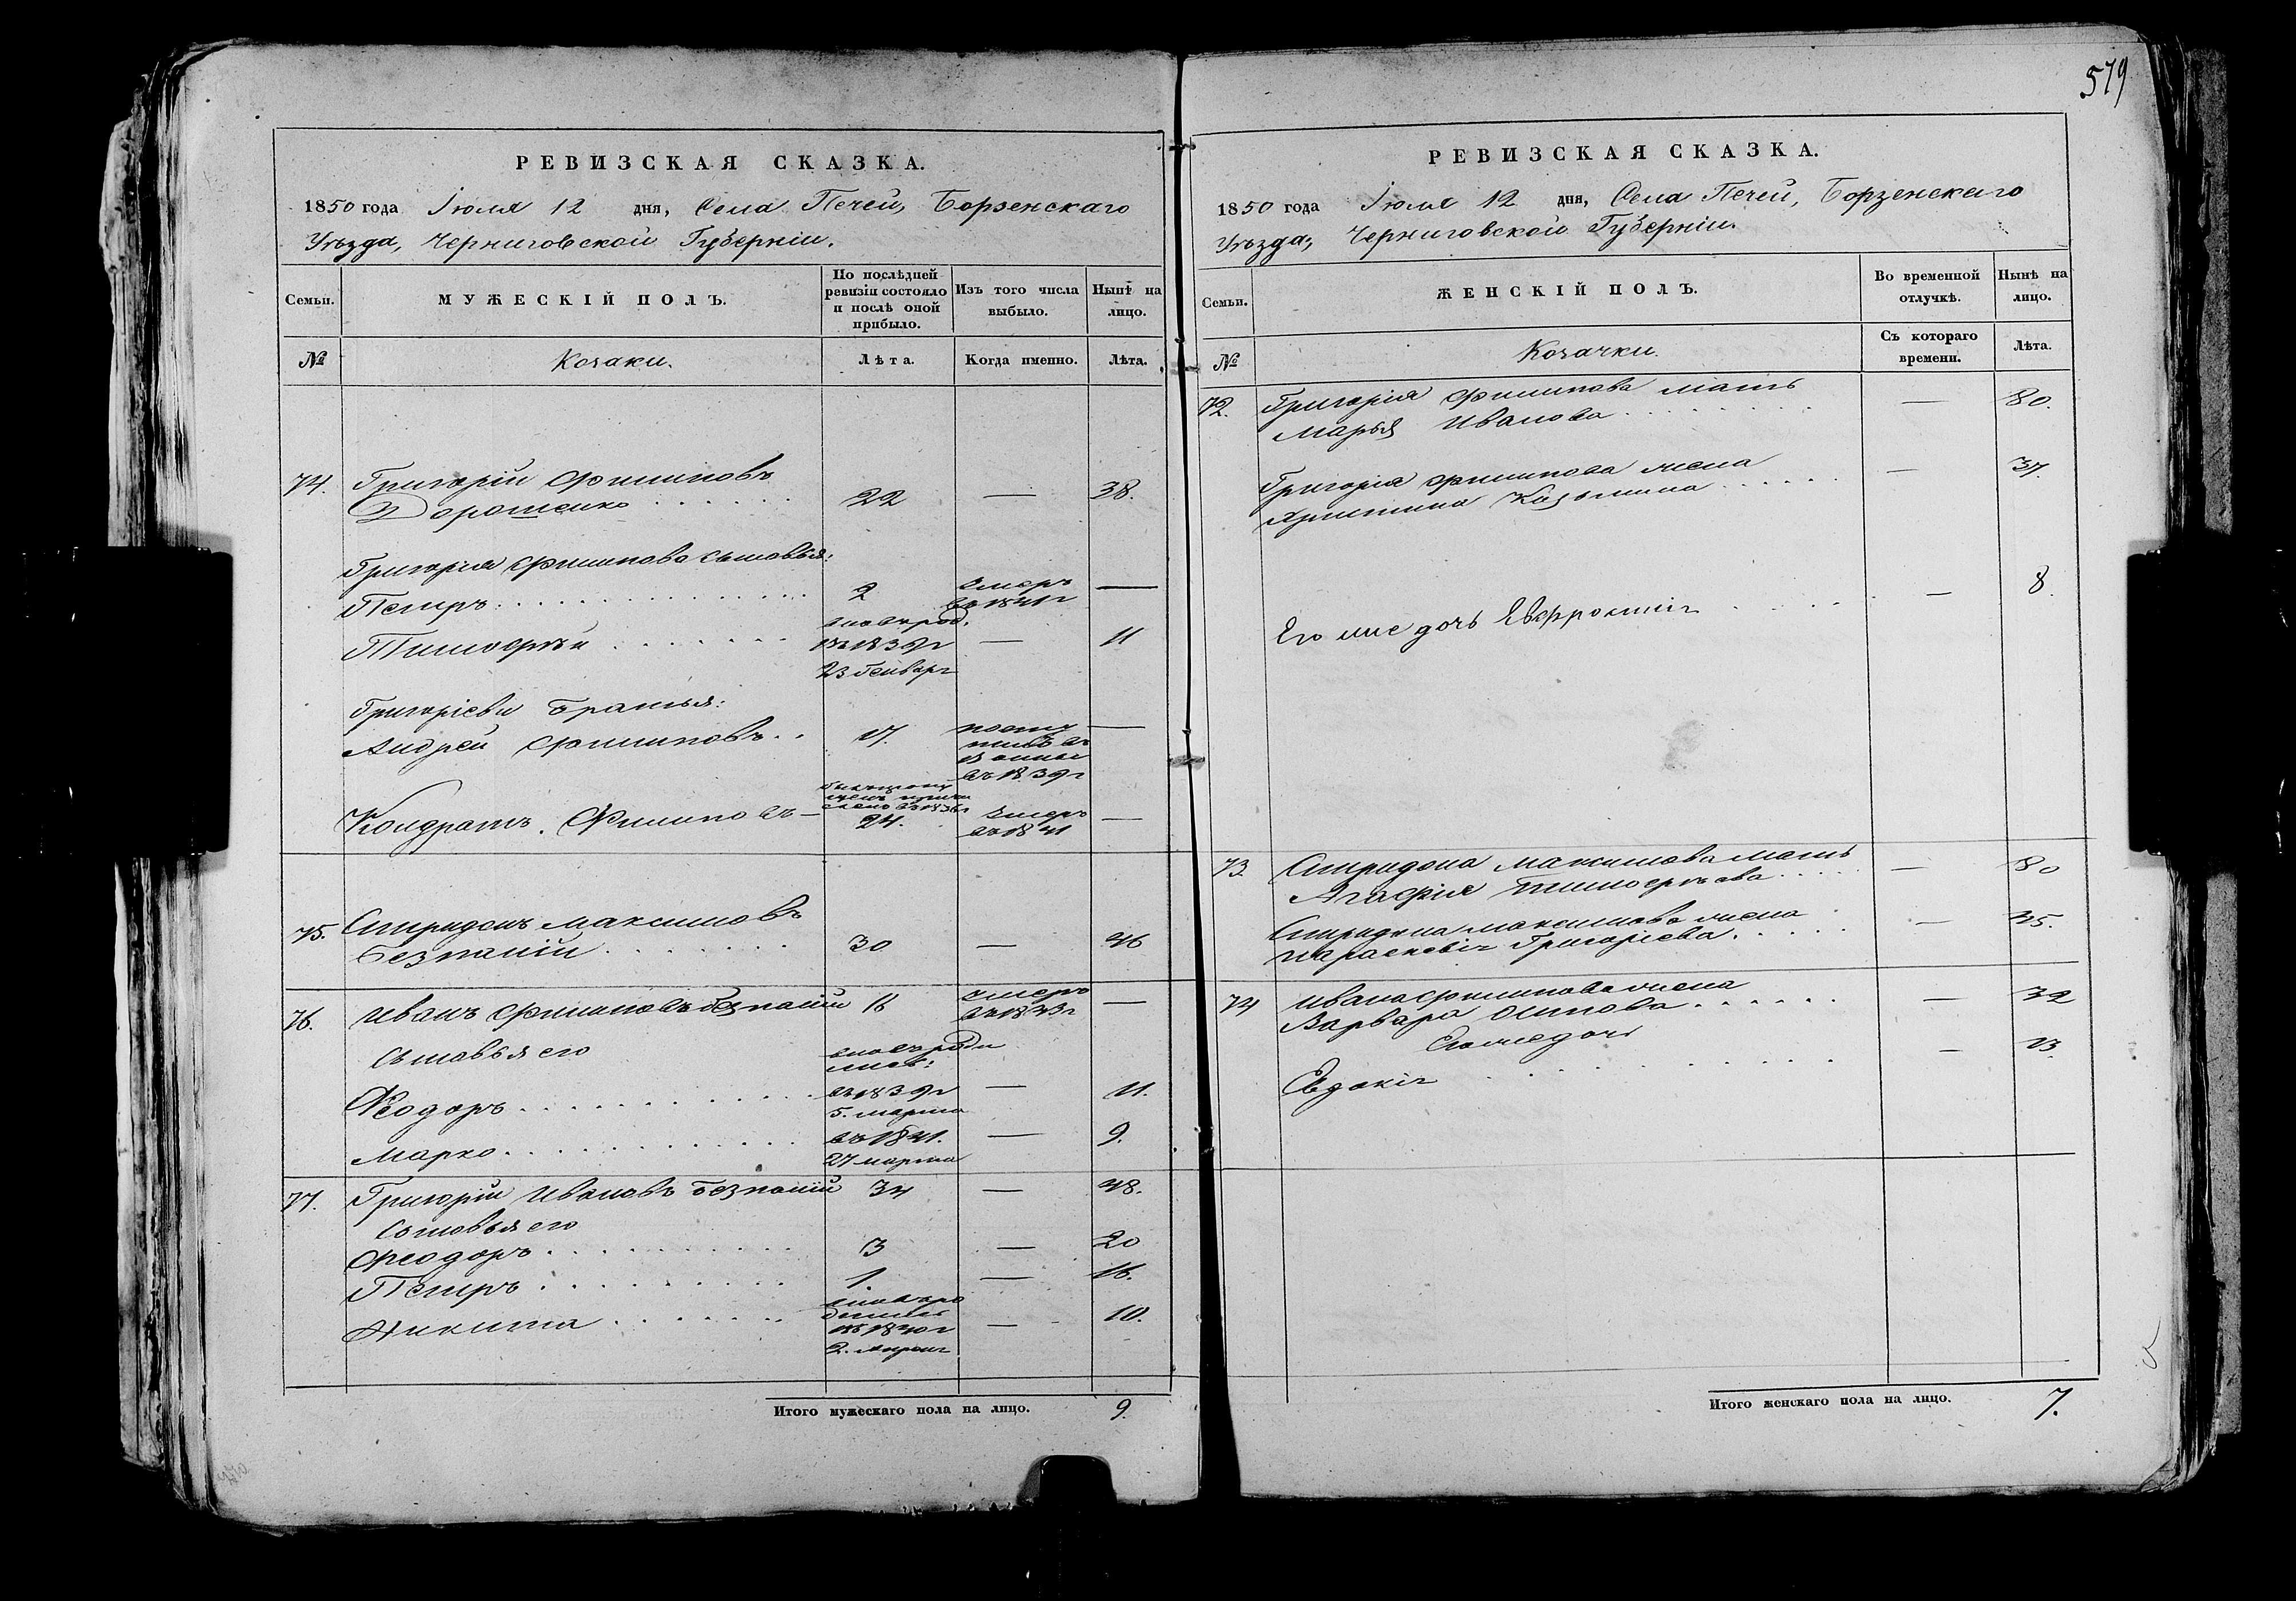 579
РЕВИЗСКАЯ СКАЗКА.
1850 года Іюля 12 дня, Села Печей, Борзенскаго
Уѣзда, Черниговской Губерніи.
Семьи.
МУЖЕСКІЙ ПОЛЪ.
По послѣдней
ревизіи состояло
и послѣ оной
прибыло.
Изъ того числа
выбыло.
Нынѣ на
лицо.
№
Козаки.
Лѣта.
Когда именно.
Лѣта.
74. Григорій Филиповъ
Дорошенко 22 — 38.
Григорія Филипова сыновья:
Петръ 2 умеръ въ 1841г —
Тимофей новород. въ 1839г 23 Генваря — 11
Григоріевы братья:
Андрей Филиповъ 17. —
въ 1839г
Кондратъ Филиповъ — 24. умеръ въ 1841 —
75. Спиридонъ Максимовъ
Безпалій 30 — 46
76. Иванъ Филиповъ Безпалій 16 умеръ въ 1843г —
Сыновья его
Феодоръ въ 1839г 5. марта — 11.
Марко въ 1841. 27 марта — 9.
77. Григорій Ивановъ Безпалій 34 — 48.
Сыновья его
Феодоръ 3 — 20
Петръ 1. — 16.
Никита въ 1840г 2. Апреля — 10.
Итого мужескаго пола на лицо. 9.
РЕВИЗСКАЯ СКАЗКА.
1850 года Іюля 12 дня, Села Печей, Борзенскаго
Уѣзда, Черниговской Губерніи.
Семьи.
ЖЕНСКІЙ ПОЛЪ.
Во временной
отлучкѣ.
Нынѣ на
лицо.
№
Козачки.
Съ котораго
времени.
Лѣта.
72. Григорія Филипова мать
Марья Иванова — 80.
Григорія Филипова жена
Христина Козьмина — 37.
Его же дочь Евфросинія — 8.
73. Спиридона Максимова мать
Агафія Тимофѣева — 80
Спиридона Максимова жена
Параскевія Григоріева. — 35.
74 Ивана Филипова жена
Варвара Осипова — 32
Его же дочь
Евдокія — 13.
Итого женскаго пола на лицо. 7.